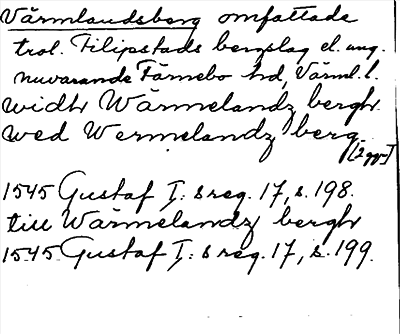 Värmlandsberg omfattade
trol. Filipstads bergslag el. ung.
nuvarande Färnebo hd, Värml. l.
widh Wärmelandz bergh
wed Wermelandz berg
[2 ggr]
1545 Gustaf I:s reg. 17, s. 198.
till Wärmelandz bergh
1545 Gustaf I:s reg. 17, s. 199.